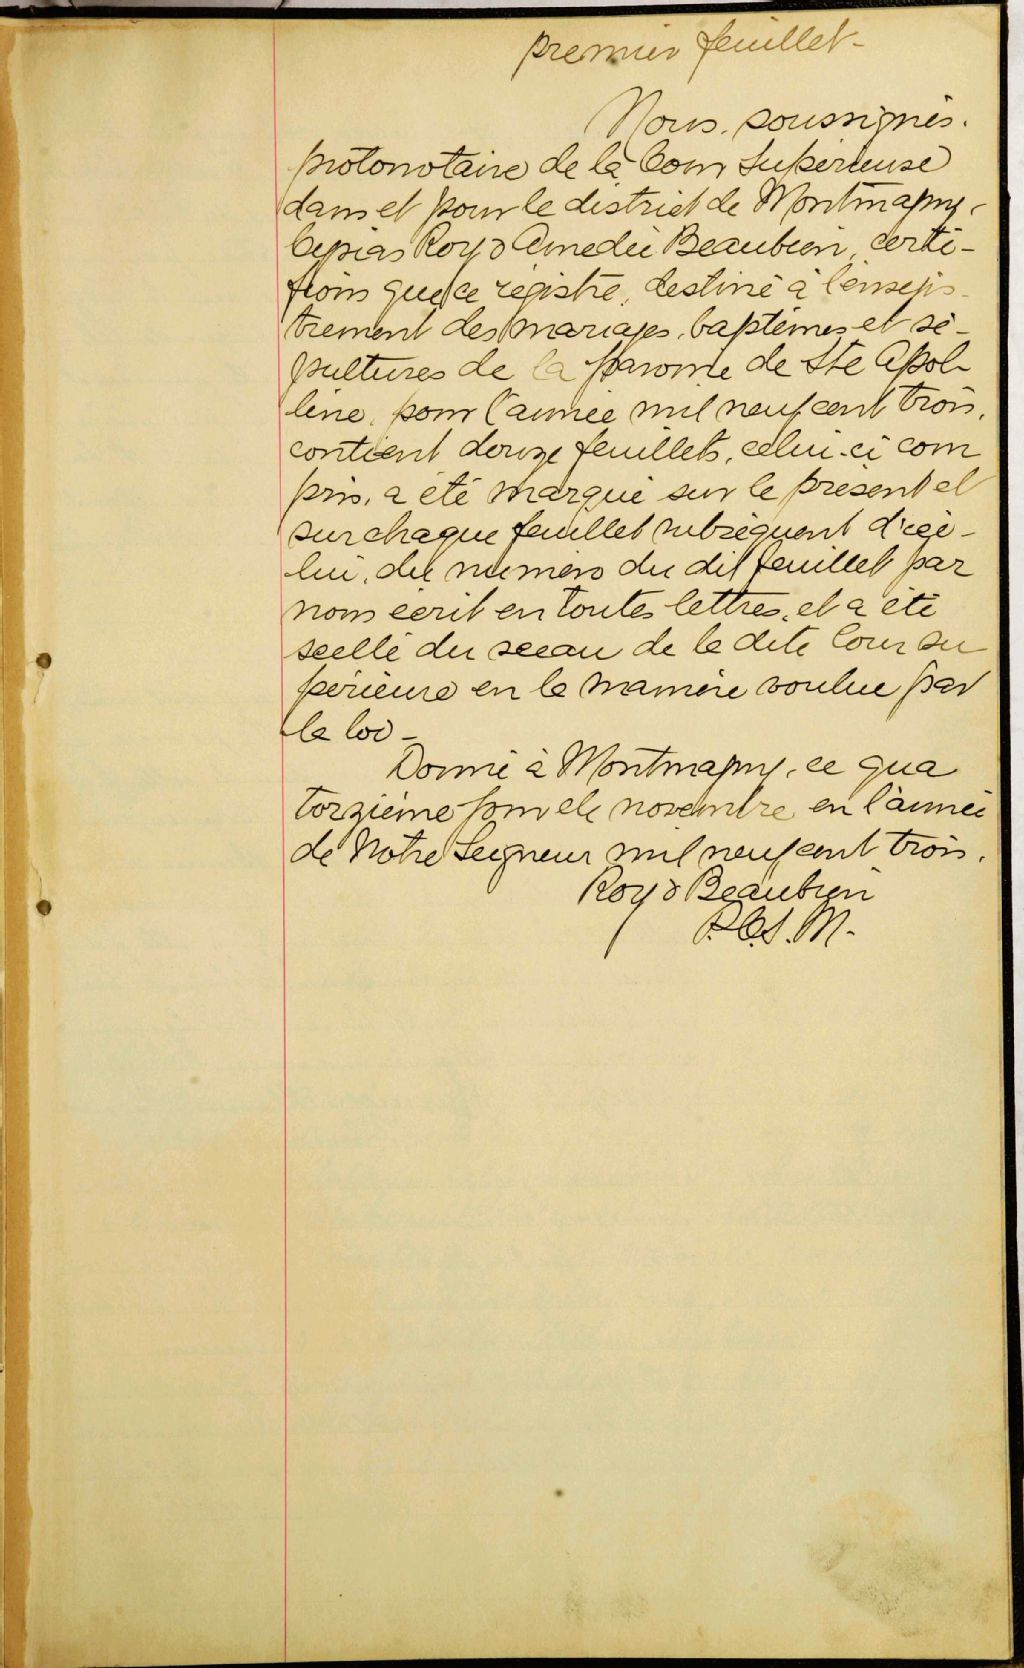 premier feuillet -
Nous, soussignés,
protonotaire de la Cour Supérieure
dans et pour le district de Montmagny,
Cépias Roy & Amédée Beaubien, certi-
fions que ce régistre, destiné à l'enregis-
trement des mariages, baptêmes et sé-
pultures de la paroisse de Ste Apol-
line, pour l'année mil neuf cent trois,
contient douze feuillets, celui-ci com
pris, a été marqué sur le présent et
sur chaque feuillet subséquent d'ice-
lui, du numéro du dit feuillet par
nous écrit en toutes lettres, et a été
scellé du sceau de la dite Cour Su
périeure en la manière voulue par
la loi -
Donné à Montmagny, ce qua
torzième jour de novembre en l'année
de Notre Seigneur mil neuf cent trois.
Roy & Beaubien
P.C.S. M.